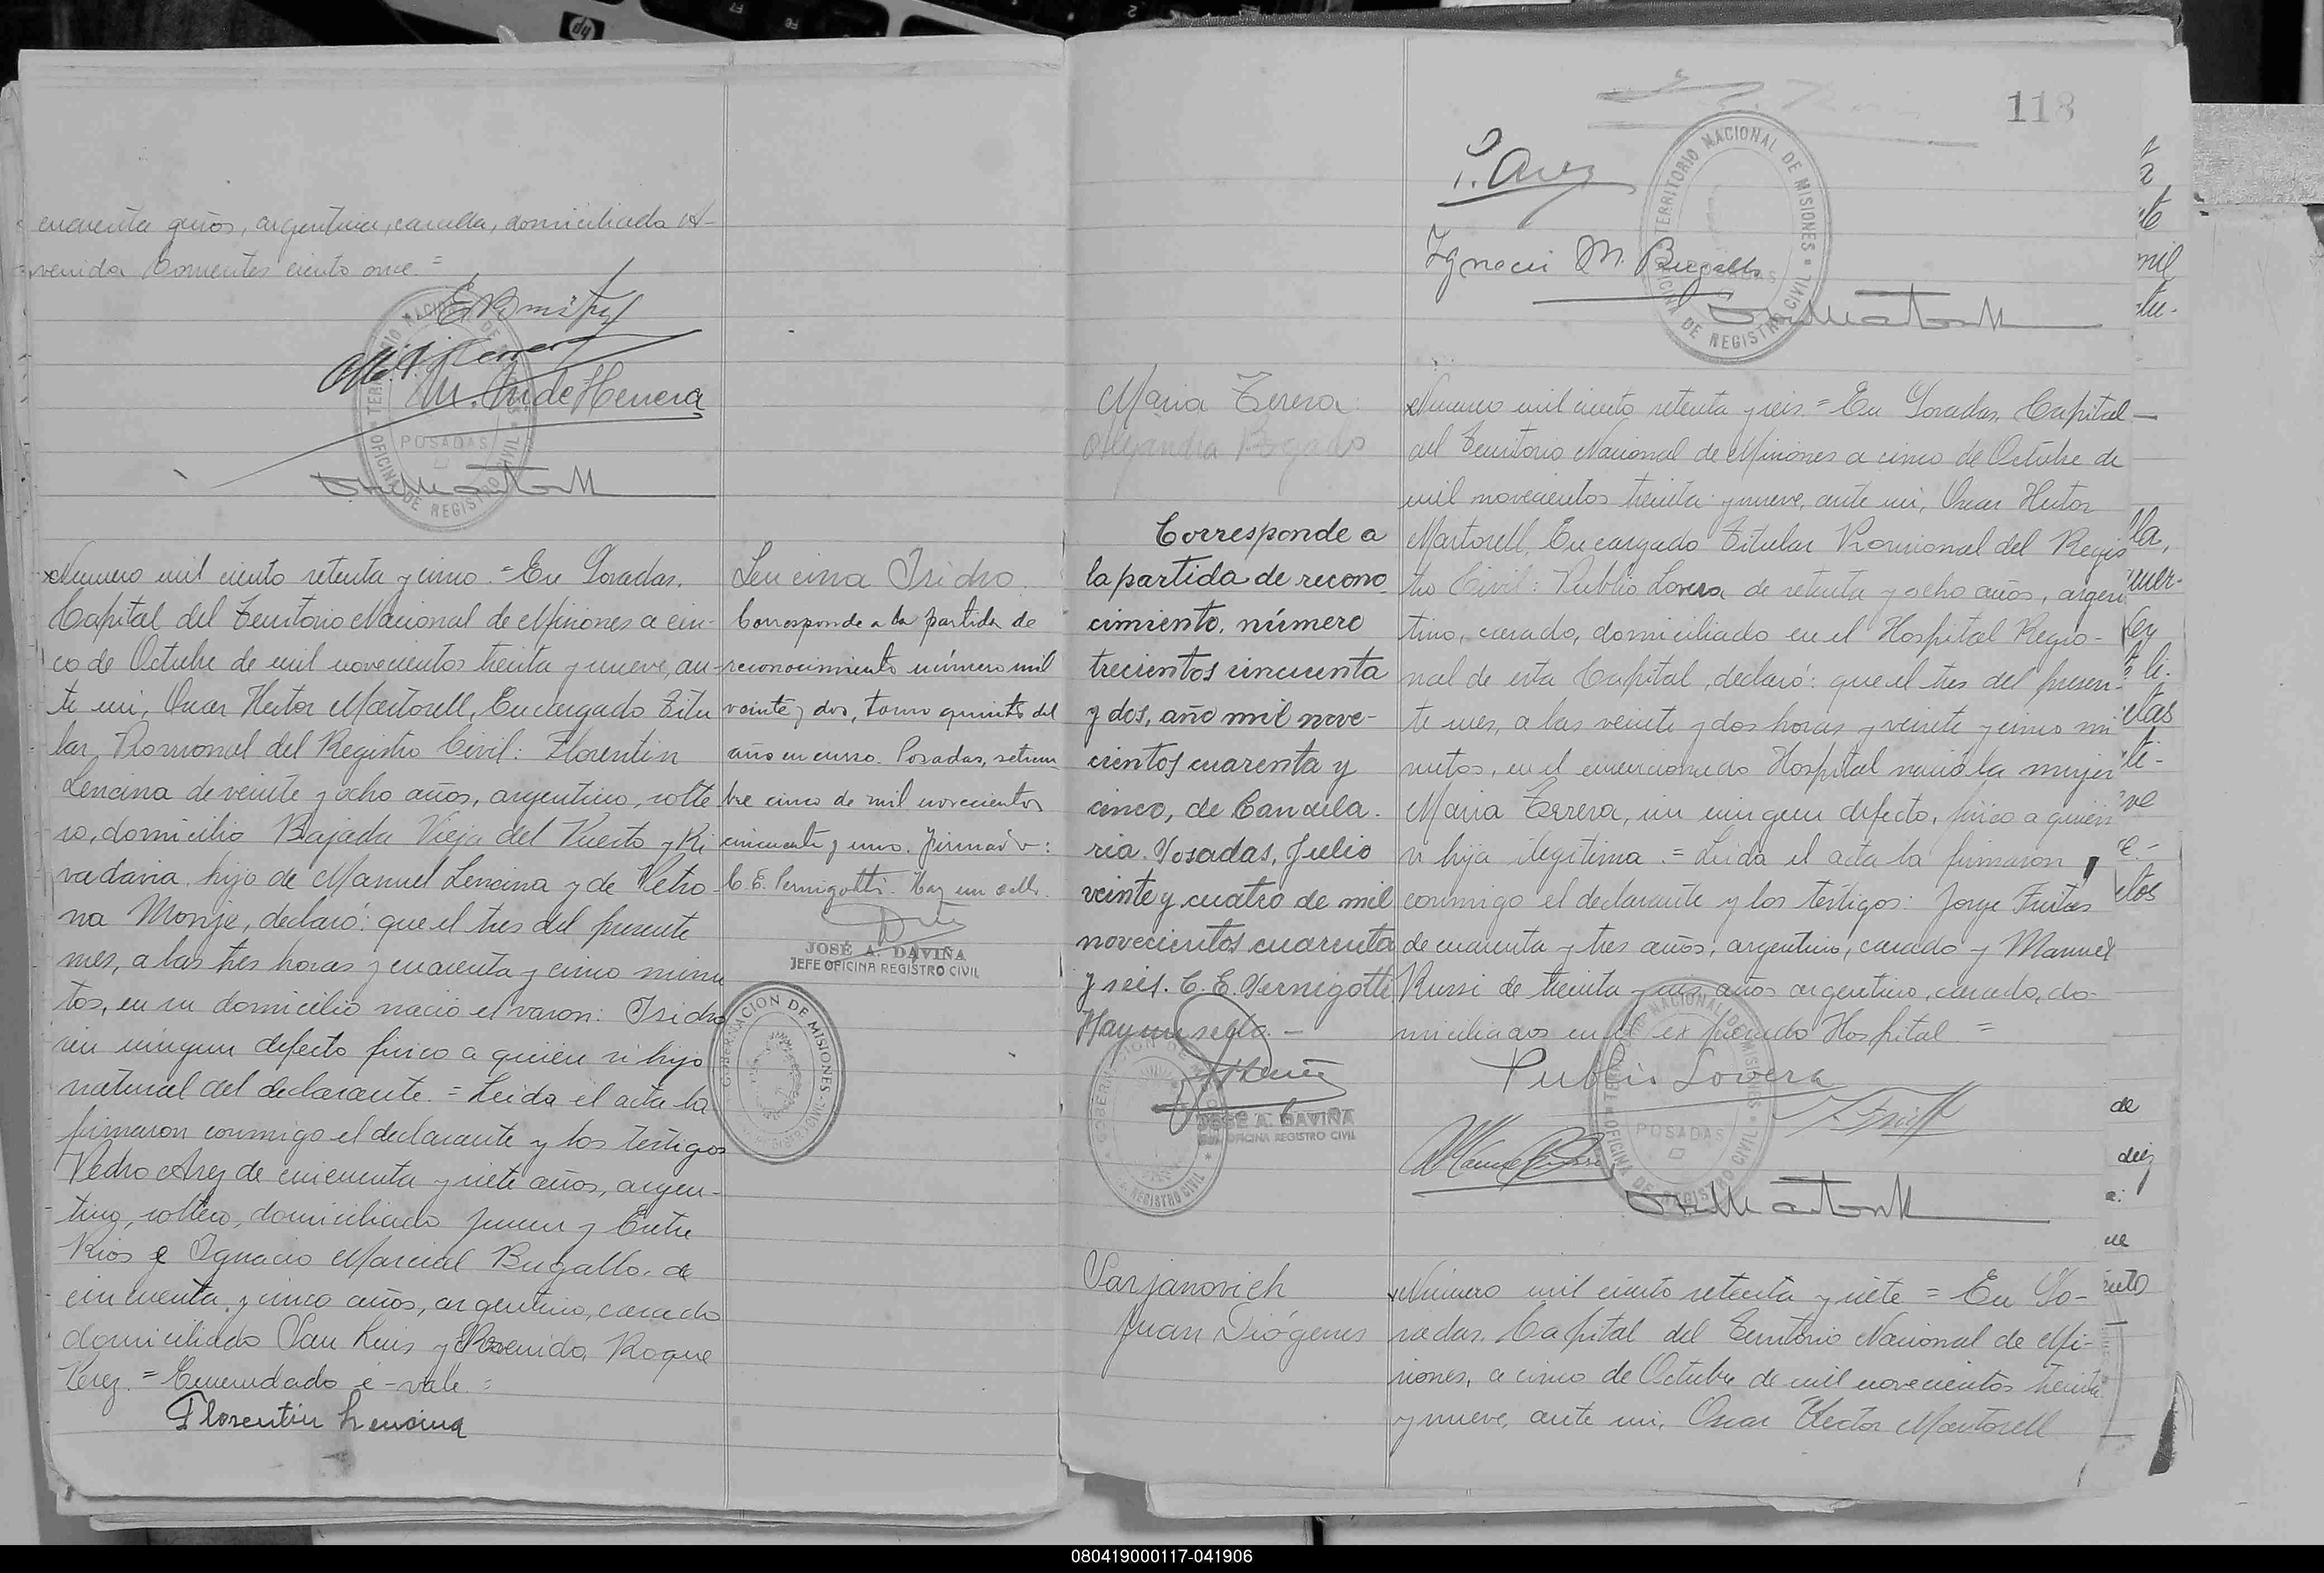 cuarenta años, argentina, casada, domiciliada A-
venida Corrientes ciento once =
M. A. de Herrera
TERRITORIO NACIONAL DE MISIONES
POSADAS
OFICINA DE REGISTRO CIVIL
Numero mil ciento setenta y cinco. = En Posadas,
Capital del Territorio Nacional de Misiones a cin-
co de Octubre de mil novecientos treinta y nueve, an-
te mi, Oscar Hector Martorell, Encargado Titu
lar, Provisional del Registro Civil: Florentin
Lencina de veinte y ocho años, argentino, solte
ro, domicilio Bajada Vieja del Puerto y Ri
vadavia, hijo de Manuel Lencina y de Petro
na Monje, declaró: que el tres del presente
mes, a las tres horas y cuarenta y cinco minu
tos, en su domicilio nació el varon: Isidro
sin ningun defecto fisico a quien vi hijo
natural del declarante. = Leida el acta la
firmaron conmigo el declarante y los testigos
Pedro Arez de cincuenta y siete años, argen-
tino, soltero, domiciliado Junin y Entre
Rios e Ignacio Marcial Bugallo, de
cincuenta y cinco años, argentino, casado
domiciliado San Luis y Avenida Roque
Perez. = Enmendado é - vale =
Florentin Lencina
Lencina Isidro
Corresponde a la partida de
reconocimiento número mil
veinte y dos, tomo quinto del
año en curso. Posadas, setiem
bre cinco de mil novecientos
cincuenta y uno. firmado:
C. E. Pernigotti. Hay un sello.
JOSÉ A. DAVIÑA
JEFE OFICINA REGISTRO CIVIL
GOBERNACION DE MISIONES
REGISTRO CIVIL
118
P. Arez
Ignacio M. Bugallo
TERRITORIO NACIONAL DE MISIONES
POSADAS
OFICINA DE REGISTRO CIVIL
Maria Teresa
Alejandra Bogado
Corresponde a
la partida de recono
cimiento, número
trecientos cincuenta
y dos, año mil nove-
cientos cuarenta y
cinco, de Candela.
ria. Posadas, Julio
veinte y cuatro de mil
novecientos cuarenta
y seis. C. E. Pernigotti
Hay un sello. -
JOSE A. DAVIÑA
JEFE OFICINA REGISTRO CIVIL
REGISTRO CIVIL
Numero mil ciento setenta y seis. = En Posadas, Capital
del Territorio Nacional de Misiones a cinco de Octubre de
mil novecientos treinta y nueve, ante mi, Oscar Hector
Martorell, Encargado Titular Provisional del Regis
tro Civil: Publio Lovera de setenta y ocho años, argen
tino, casado, domiciliado en el Hospital Regio-
nal de esta Capital, declaró: que el tres del presen-
te mes, a las veinte y dos horas y veinte y cinco mi
nutos, en el mencionado Hospital nació la mujer
Maria Teresa, sin ningun defecto, fisico a quien
vi hija ilegitima. = Leida el acta la firmaron
conmigo el declarante y los testigos: Jorge Freitas
de cuarenta y tres años, argentino, casado y Manuel
Russi de treinta y seis años argentino, casado, do-
miciliados en el expresado Hospital =
Publio Lovera
TERRITORIO NACIONAL DE MISIONES
POSADAS
OFICINA DE REGISTRO CIVIL
Sarjanovich
Juan Diógenes
Número mil ciento setenta y siete = En Po-
sadas, Capital del Territorio Nacional de Mi-
siones, a cinco de Octubre de mil novecientos treinta
y nueve, ante mi, Oscar Hector Martorell
080419000117-041906